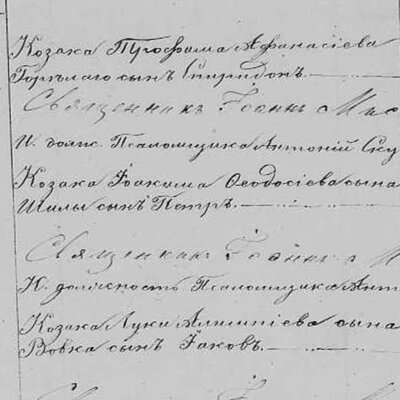 Козака Трофима Афанасіева
Горѣлаго сынъ Спиридонъ.
Священникъ Іоаннъ Мис
И. долж. Псаломщика Антоній Ску
Козака Іоакима Ѳеодосіева сына
Шилы сынъ Петръ.
Священникъ Іоаннъ М
И. должность Псаломщика Ант
Козака Луки Алимпіева сына
Вовка сынъ Іаковъ.